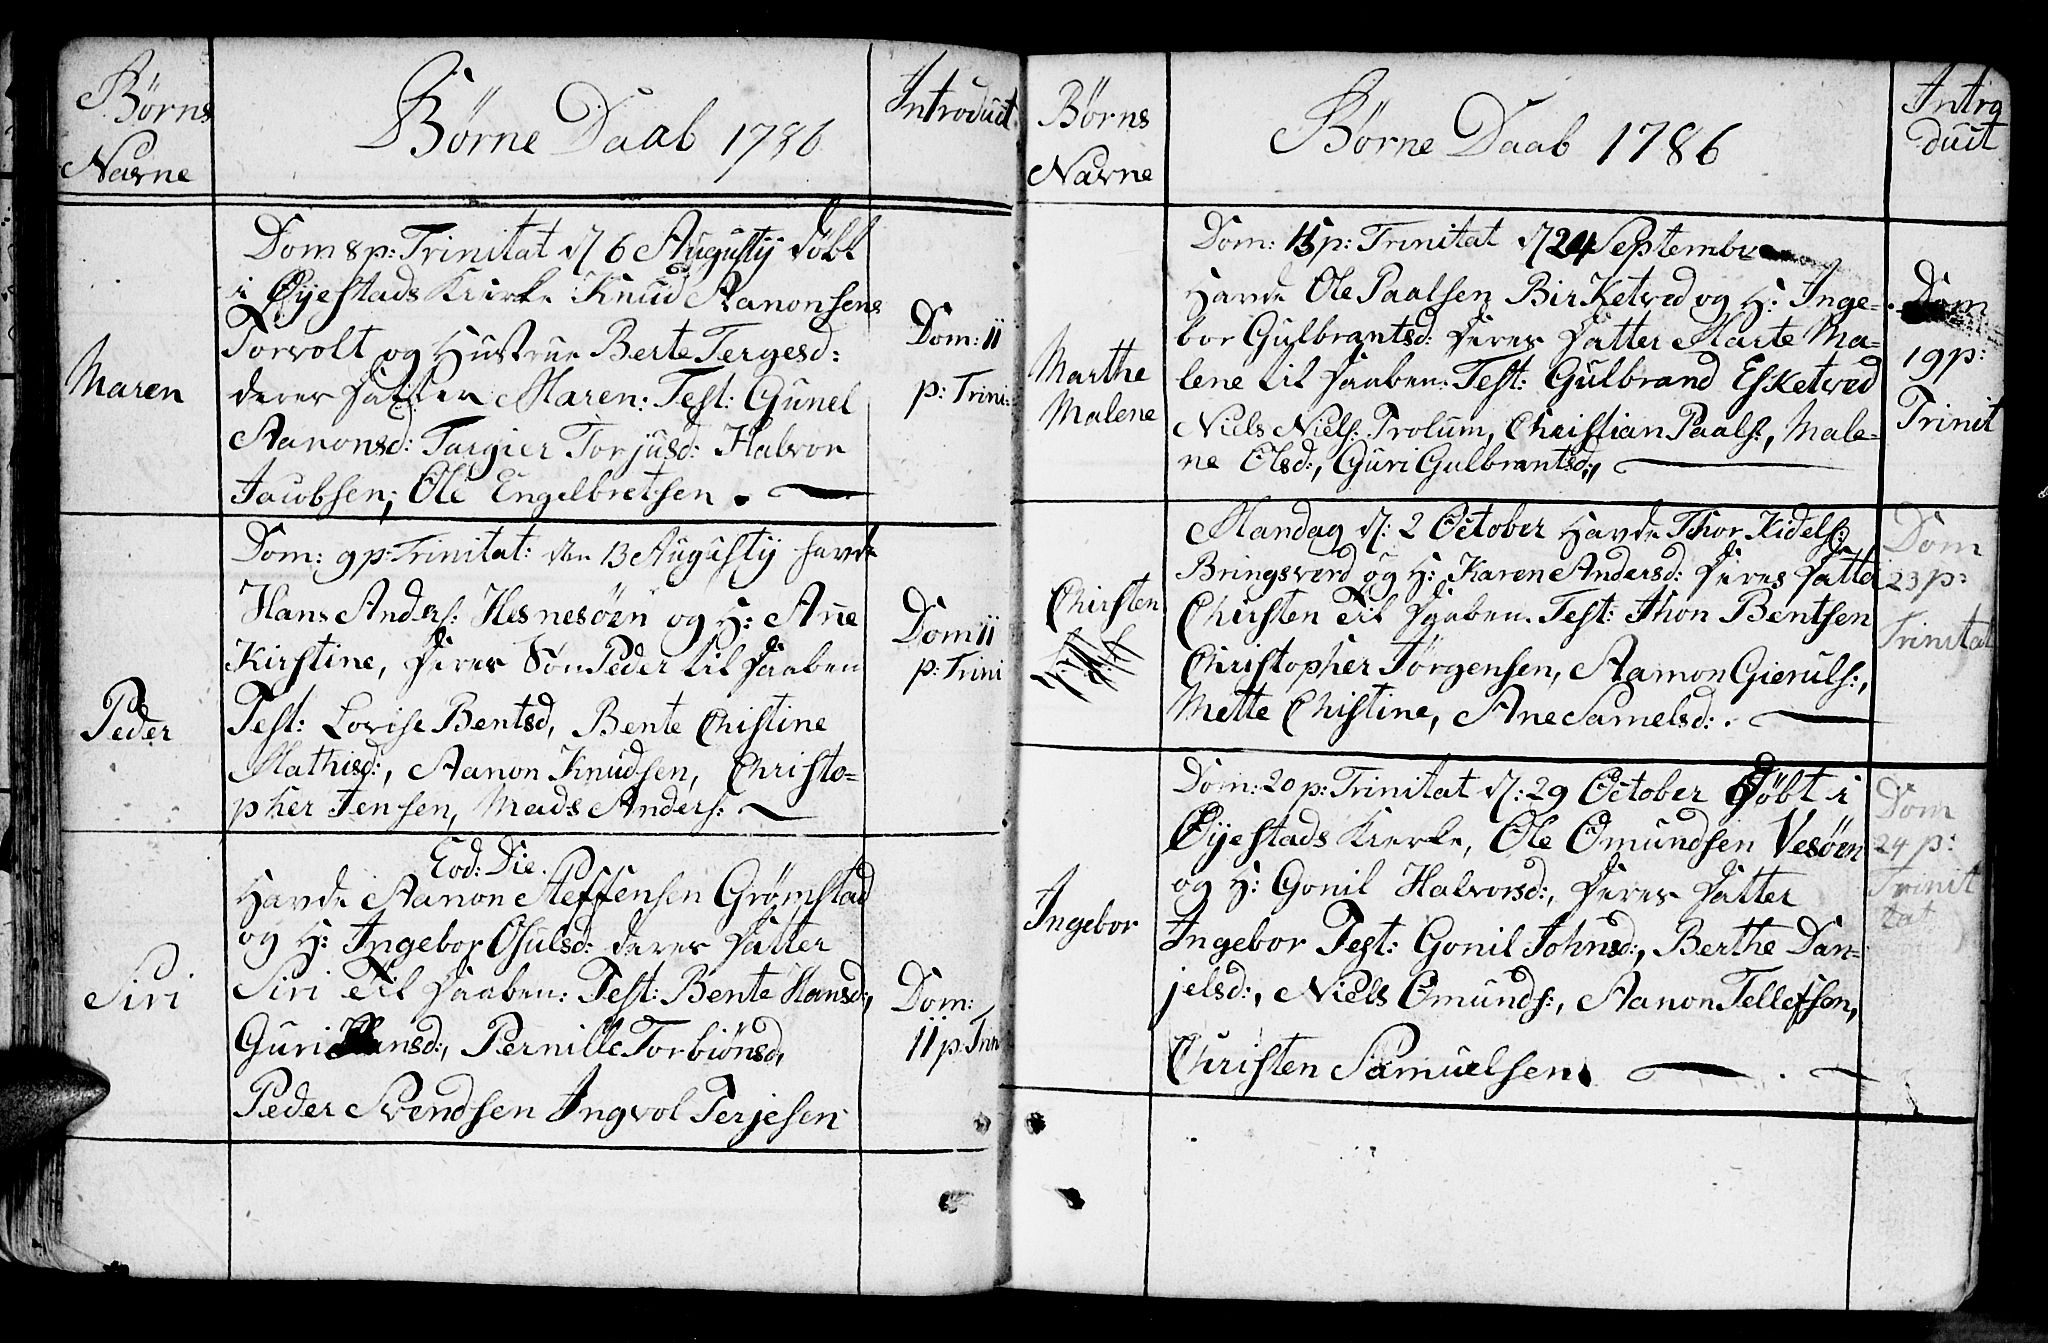 Børns
Navne
Børne Daab 1786
Introduct
Maren
Dom 8 p: Trinitat d. 6 Augustij døbt
i Øyestads Kirke Knud Aanonsens
Torvolt og Hustrue Berte Tergesd:
deres datter Maren: Test: Gunel
Aanonsd: Targier Torjusd: Halvor
Jacobsen; Ole Engelbretsen.
Dom: 11
p: Trini:
Peder
Dom: 9 p: Trinitat: den 13 Augustij havde
Hans Anders: Hesnesøen og H: Ane
Kirstine, deres Søn Peder til daaben
Test: Lovise Bentsd, Bente Christine
Mathisd:, Aanon Knudsen, Christo-
pher Jensen, Mads Anders:
Dom 11
p: Trini
Siri
Eod: Die.
Havde Aanon Steffensen Grømstad
og H: Ingebor Osulsd: deres datter
Siri til daaben: Test: Bente Hansd:,
Guri Hansd:, Pernille Torbiønsd,
Peder Svendsen Ingvol Terjesen
Dom:
11 p: Trin
Børns
Navne
Børne Daab 1786
Intro
duct
Marthe
Malene
Dom: 15 p: Trinitat d. 24 Septembr
Havde Ole Paalsen Birketved og H: Inge-
bor Gulbrantsd: deres datter Marte Ma-
lene til daaben: Test: Gulbrand Esketved
Niels Niels: Trolum, Christian Paals:, Male-
ne Olsd:, Guri Gulbrantsd:,
Dom
19 p:
Trinit
Chirsten
Mandag d: 2 October Havde Thor Kidels:
Bringsverd og H: Karen Andersd: deres datter
Chirsten til daaben. Test: Jhon Bentsen
Christopher Jørgensen, Aamon Gieruls:,
Mette Christine, Ane Samelsd:.
Dom
23 p:
Trinitat
Ingebor
Dom: 20 p: Trinitat d: 29 October Døbt i
Øyestads Kierke, Ole Omundsen Vesøen
og H: Gonil Halvorsd:, deres datter
Ingebor Test: Gonil Johnsd:, Berthe Dan-
jelsd:, Niels Omunds:, Aanon Tellefsen,
Christen Samuelsen.
Dom
24 p:
Trinit
tat